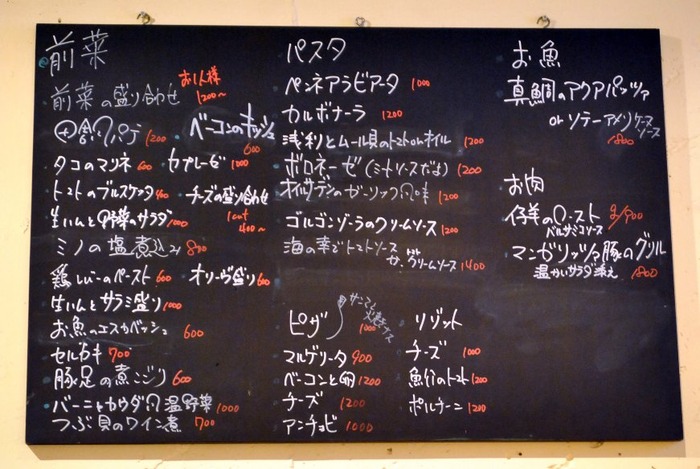 前菜
お1人様
前菜の盛り合わせ 1200〜
田舎風パテ 1200 ベーコンのキッシュ 600
タコのマリネ 600 カプレーゼ 1000
トマトのブルスケッタ 400 チーズの盛り合わせ
生ハムと野菜のサラダ 1000 1cut 400〜
ミノの塩煮込み 800
鶏レバーのペースト 600 オリーヴ盛り 600
生ハムとサラミ盛り 1000
お魚のエスカベッシュ 600
セルカキ 700
豚足の煮こごり 600
バーニャカウダ風温野菜 1000
つぶ貝のワイン煮 700
パスタ
ペンネアラビアータ 1000
カルボナーラ 1200
浅利とムール貝のトマトorオイル 1200
ボロネーゼ(ミートソースだよ) 1200
オイルサーデンのガーリック風味 1200
ゴルゴンゾーラのクリームソース 1200
海の幸でトマトソース
クリームソース 1400
ピザ
1000
マルゲリータ 900
ベーコンと卵 1200
チーズ 1200
アンチョビ 1000
リゾット
チーズ 1000
魚介のトマト 1200
ポルチーニ 1200
お魚
真鯛のアクアパッツァ
or ソテーアメリケーヌソース
1800
お肉
仔羊のロースト
バルサミコソース
マンガリッツァ豚のグリル
温かいサラダ添え 1800